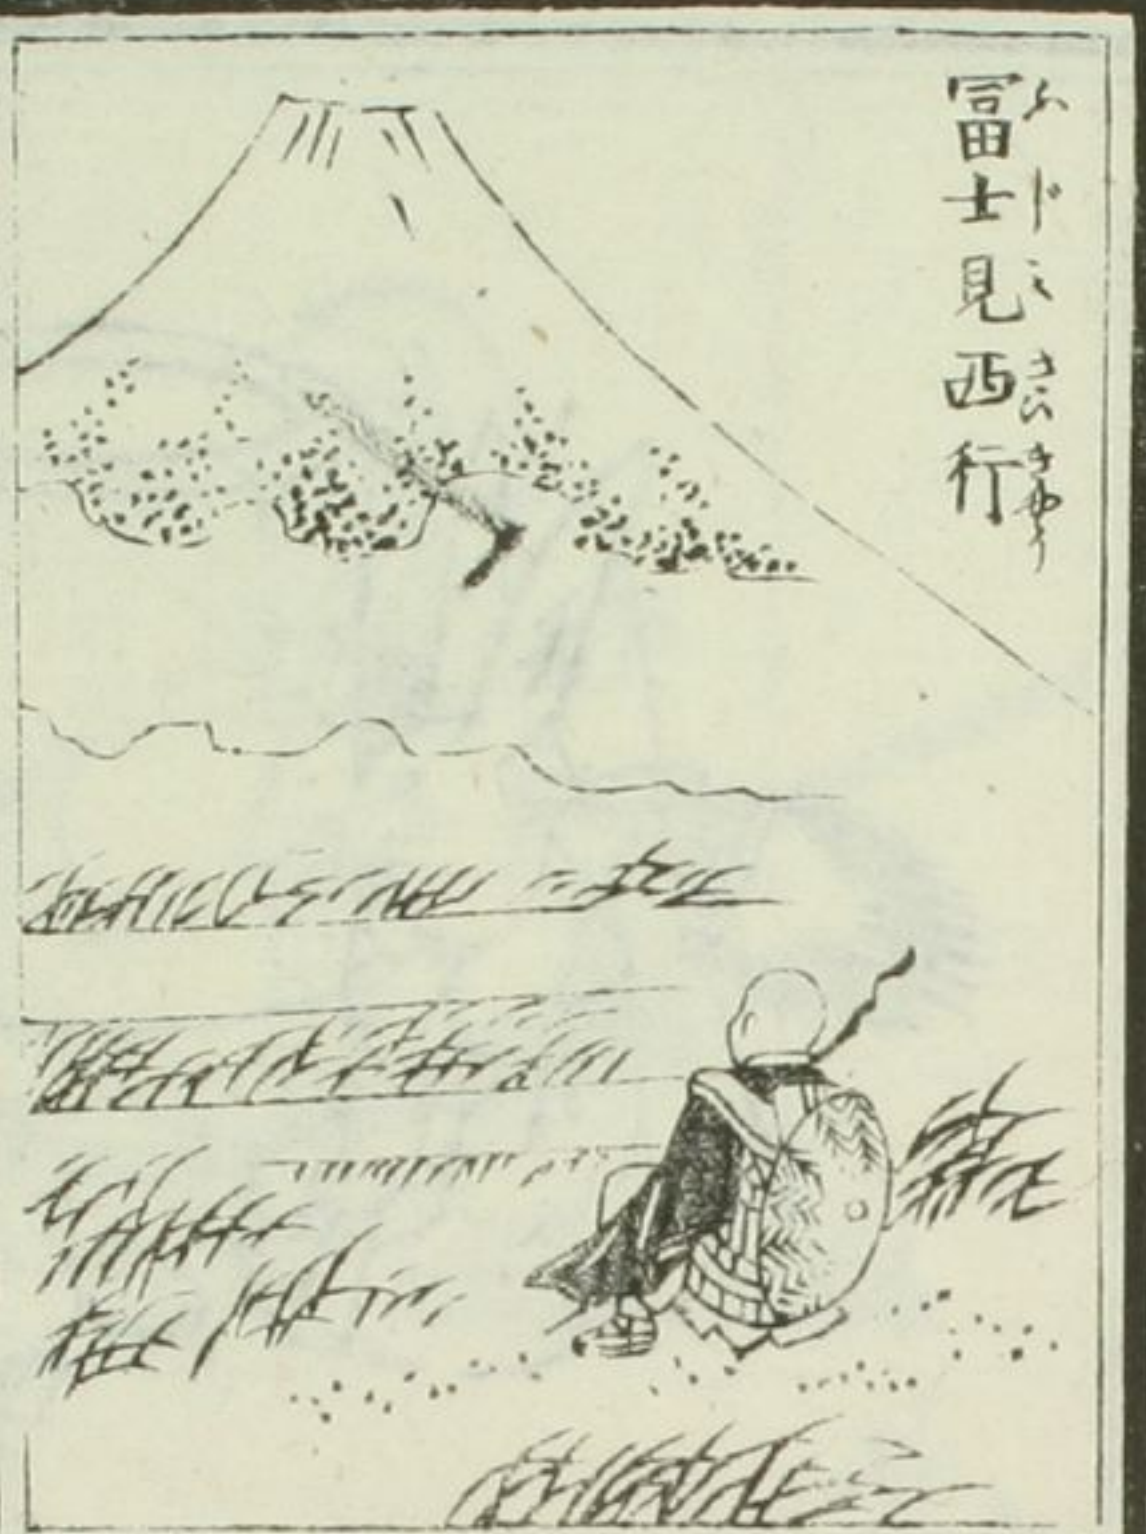 冨士見西行
ふじみさいぎやう